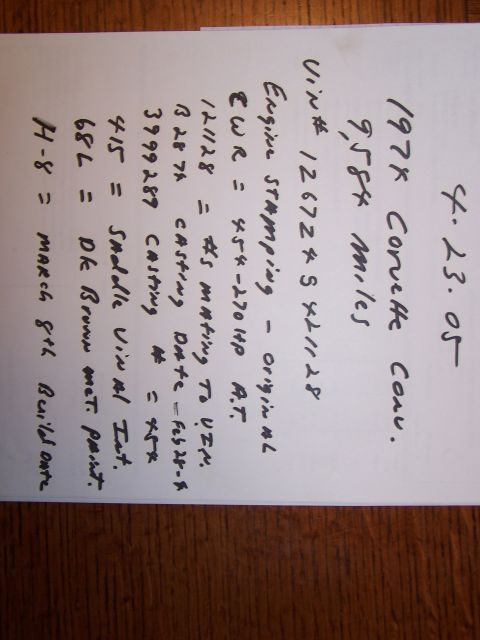 4.23.05
1974 Corvette Conv.
9,584 miles
Vin# 1Z67Z4S421128
Engine Stamping - original
CWR = 454-270HP A.T.
121128 = #s mating To VIN.
B2874 casting Date - Feb 28-4
3999289 casting # = 454
415 = Saddle Vinal Int.
68L = DK Brown met. paint.
H-8 = march 8th Build Date